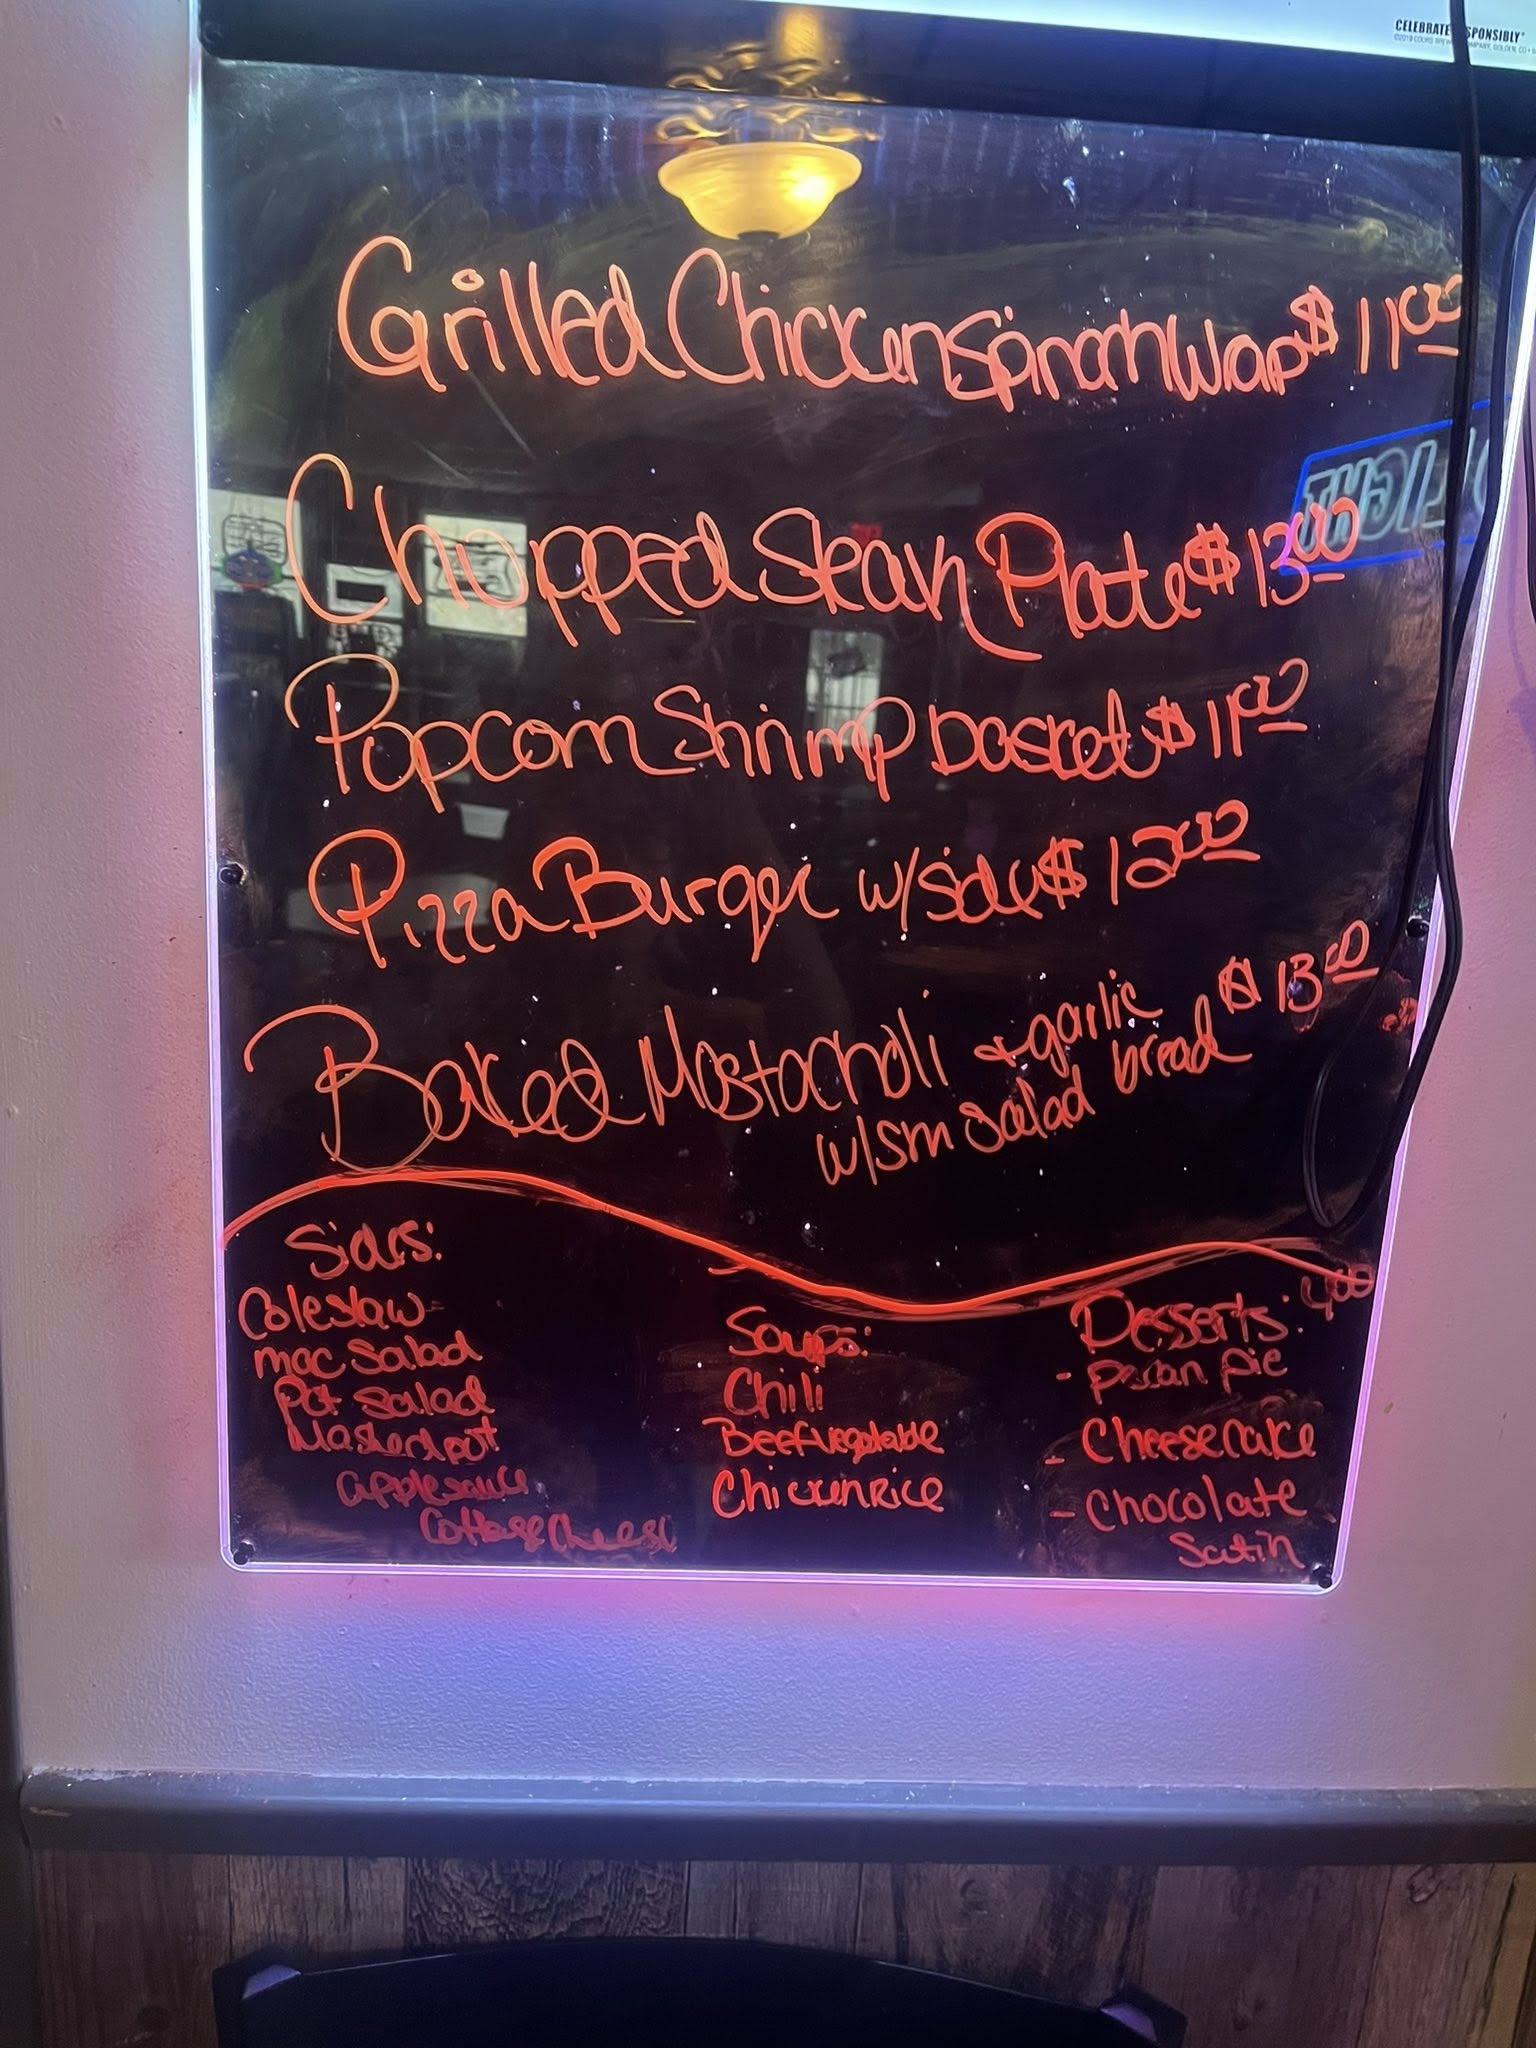 CELEBRATE RESPONSIBLY
Grilled Chicken Spinach Wrap $11.00
LIGHT
Chopped Steak Plate $13.00
Popcorn Shrimp basket $11.00
Pizza Burger w/side $12.00
Baked Mostacholi & garlic bread $13.00
w/sm salad
Sides:
Coleslaw
mac Salad
Pot Salad
Mashed pot
applesauce
Cottage Cheese
Soups:
Chili
Beef Vegetable
Chicken Rice
Desserts: 4.00
- pecan pie
- Cheese Cake
- Chocolate
Satin